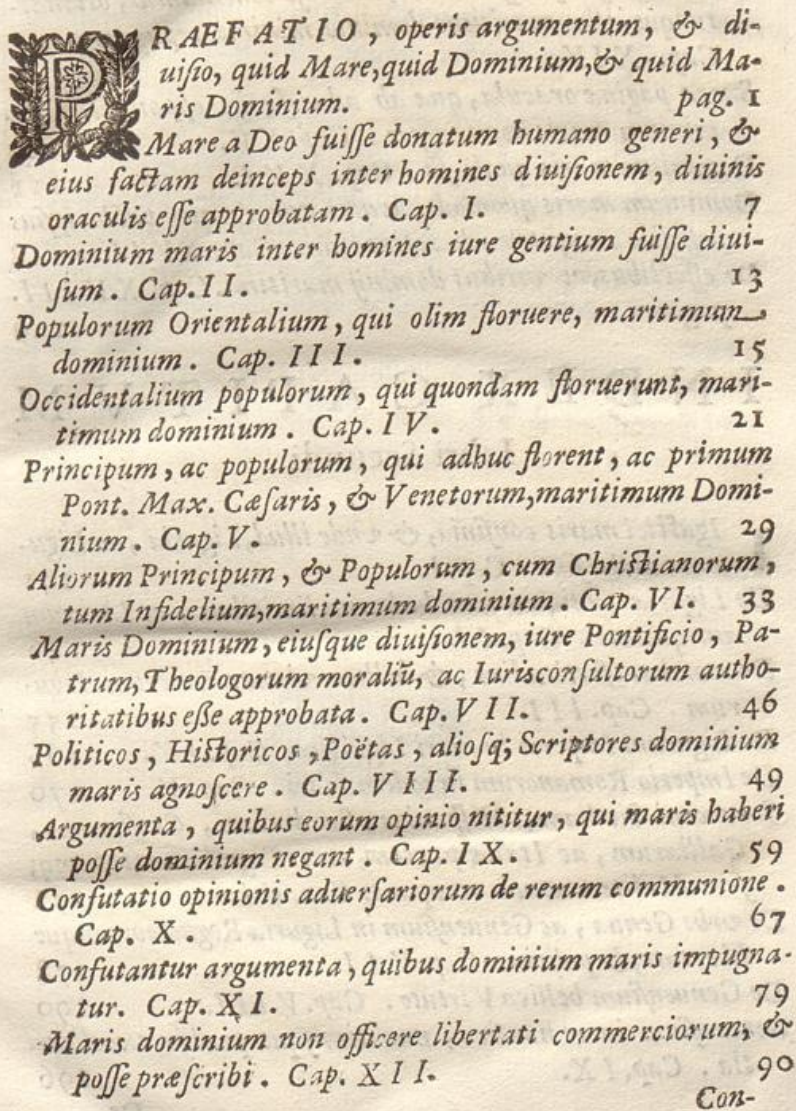 PRAEFATIO, operis argumentum, & di-
uiſio, quid Mare,quid Dominium,& quid Ma-
ris Dominium. pag. 1
Mare a Deo fuiſſe donatum humano generi, &
eius factam deinceps inter homines diuiſionem, diuinis
oraculis eſſe approbatam. Cap. I. 7
Dominium maris inter homines iure gentium fuiſſe diui-
ſum. Cap. II. 13
Populorum Orientalium, qui olim floruere, maritimum
dominium. Cap. III. 15
Occidentalium populorum, qui quondam floruerunt, mari-
timum dominium. Cap. IV. 21
Principum, ac populorum, qui adhuc florent, ac primum
Pont. Max. Cæſaris, & Venetorum,maritimum Domi-
nium. Cap. V. 29
Aliorum Principum, & Populorum, cum Chriſtianorum,
tum Infidelium,maritimum dominium. Cap. VI. 33
Maris Dominium, eiuſque diuiſionem, iure Pontificio, Pa-
trum, Theologorum moraliũ, ac Iuriſconſultorum autho-
ritatibus eſſe approbata. Cap. VII. 46
Politicos, Hiſtoricos, Poëtas, alioſq; Scriptores dominium
maris agnoſcere. Cap. VIII. 49
Argumenta, quibus eorum opinio nititur, qui maris haberi
poſſe dominium negant. Cap. IX. 59
Confutatio opinionis aduerſariorum de rerum communione.
Cap. X. 67
Confutantur argumenta, quibus dominium maris impugna-
tur. Cap. XI. 79
Maris dominium non officere libertati commerciorum, &
poſſe præſcribi. Cap. XII. 90
Con-